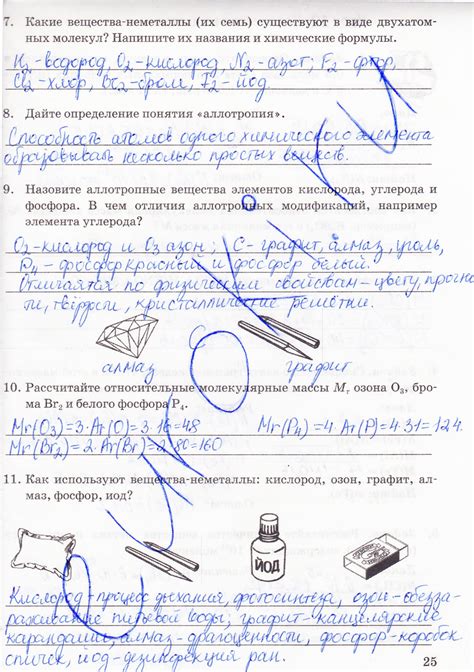 7. Какие вещества-неметаллы (их семь) существуют в виде двухатом-
ных молекул? Напишите их названия и химические формулы.
H₂-водород, O₂-кислород, N₂-азот; F₂-фтор,
Cl₂-хлор, Br₂-бром; I₂-йод.
8. Дайте определение понятия «аллотропия».
Способность атомов одного химического элемента
образовывать несколько простых веществ.
9. Назовите аллотропные вещества элементов кислорода, углерода и
фосфора. В чем отличия аллотропных модификаций, например
элемента углерода?
O₂-кислород и O₃ азон; C-графит, алмаз, уголь,
P₄-фосфор красный и фосфор белый.
Отличается по физическим свойствам-цвету, прочнос-
ти, твёрдости, кристаллические решётки.
C
алмаз графит
10. Рассчитайте относительные молекулярные массы Mr озона O₃, бро-
ма Br₂ и белого фосфора P₄.
Mr(O₃)=3·Ar(O)=3·16=48 Mr(P₄)=4·Ar(P)=4·31=124.
Mr(Br₂)=2·Ar(Br)=2·80=160
11. Как используют вещества-неметаллы: кислород, озон, графит, ал-
маз, фосфор, иод?
ЙОД
Кислород-процесс дыхания, фотосинтеза, озон-обезза-
раживание питьевой воды; графит-канцелярские
карандаши; алмаз-драгоценности, фосфор-коробок
спичек, йод-дезинфекция ран.
25